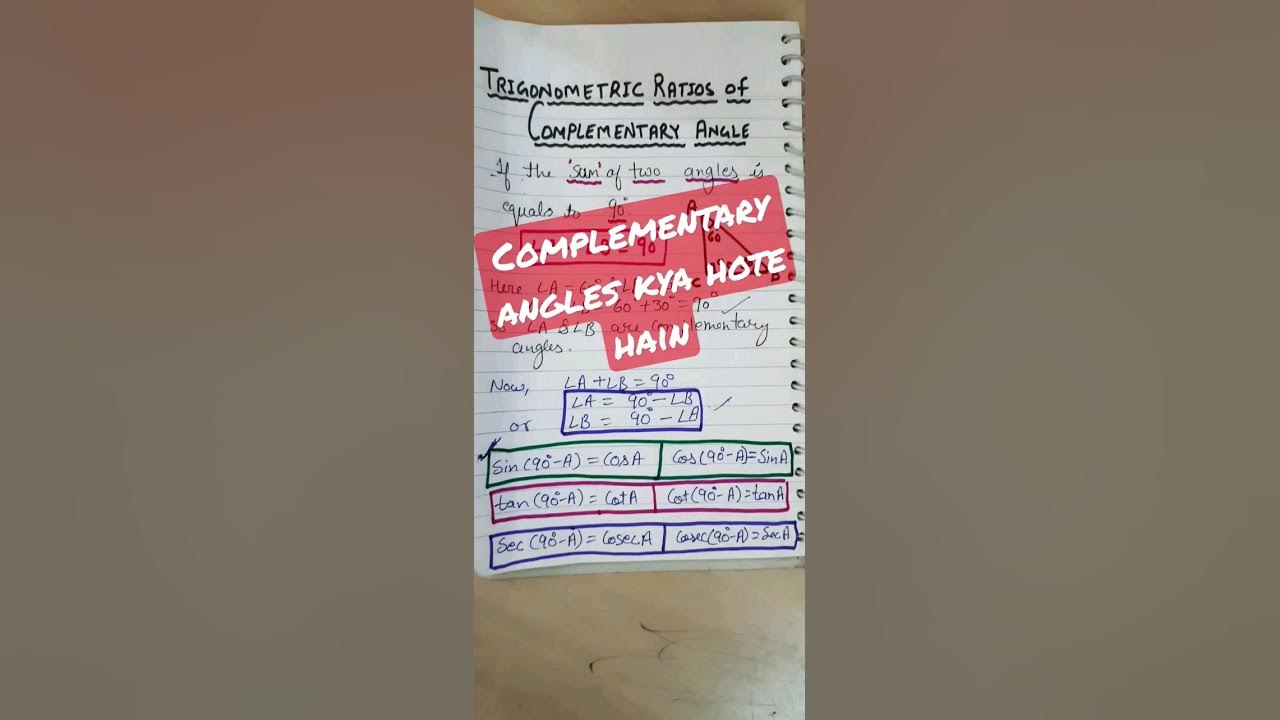 TRIGONOMETRIC RATIOS of
COMPLEMENTARY ANGLE
If the 'Sum' of two angles is
equals to 90°.
A
60°
COMPLEMENTARY
ANGLES KYA HOTE
HAIN
= 90
C
B
Here ∠A =
60°+30° = 90°
So ∠A & ∠B are complementary
angles.
Now, ∠A + ∠B = 90°
∠A = 90° - ∠B
or ∠B = 90° - ∠A
Sin (90°-A) = CosA Cos(90°-A)=SinA
tan (90°-A) = CotA Cot(90°-A)=tanA
Sec (90°-A) = CosecA Cosec(90°-A)=SecA